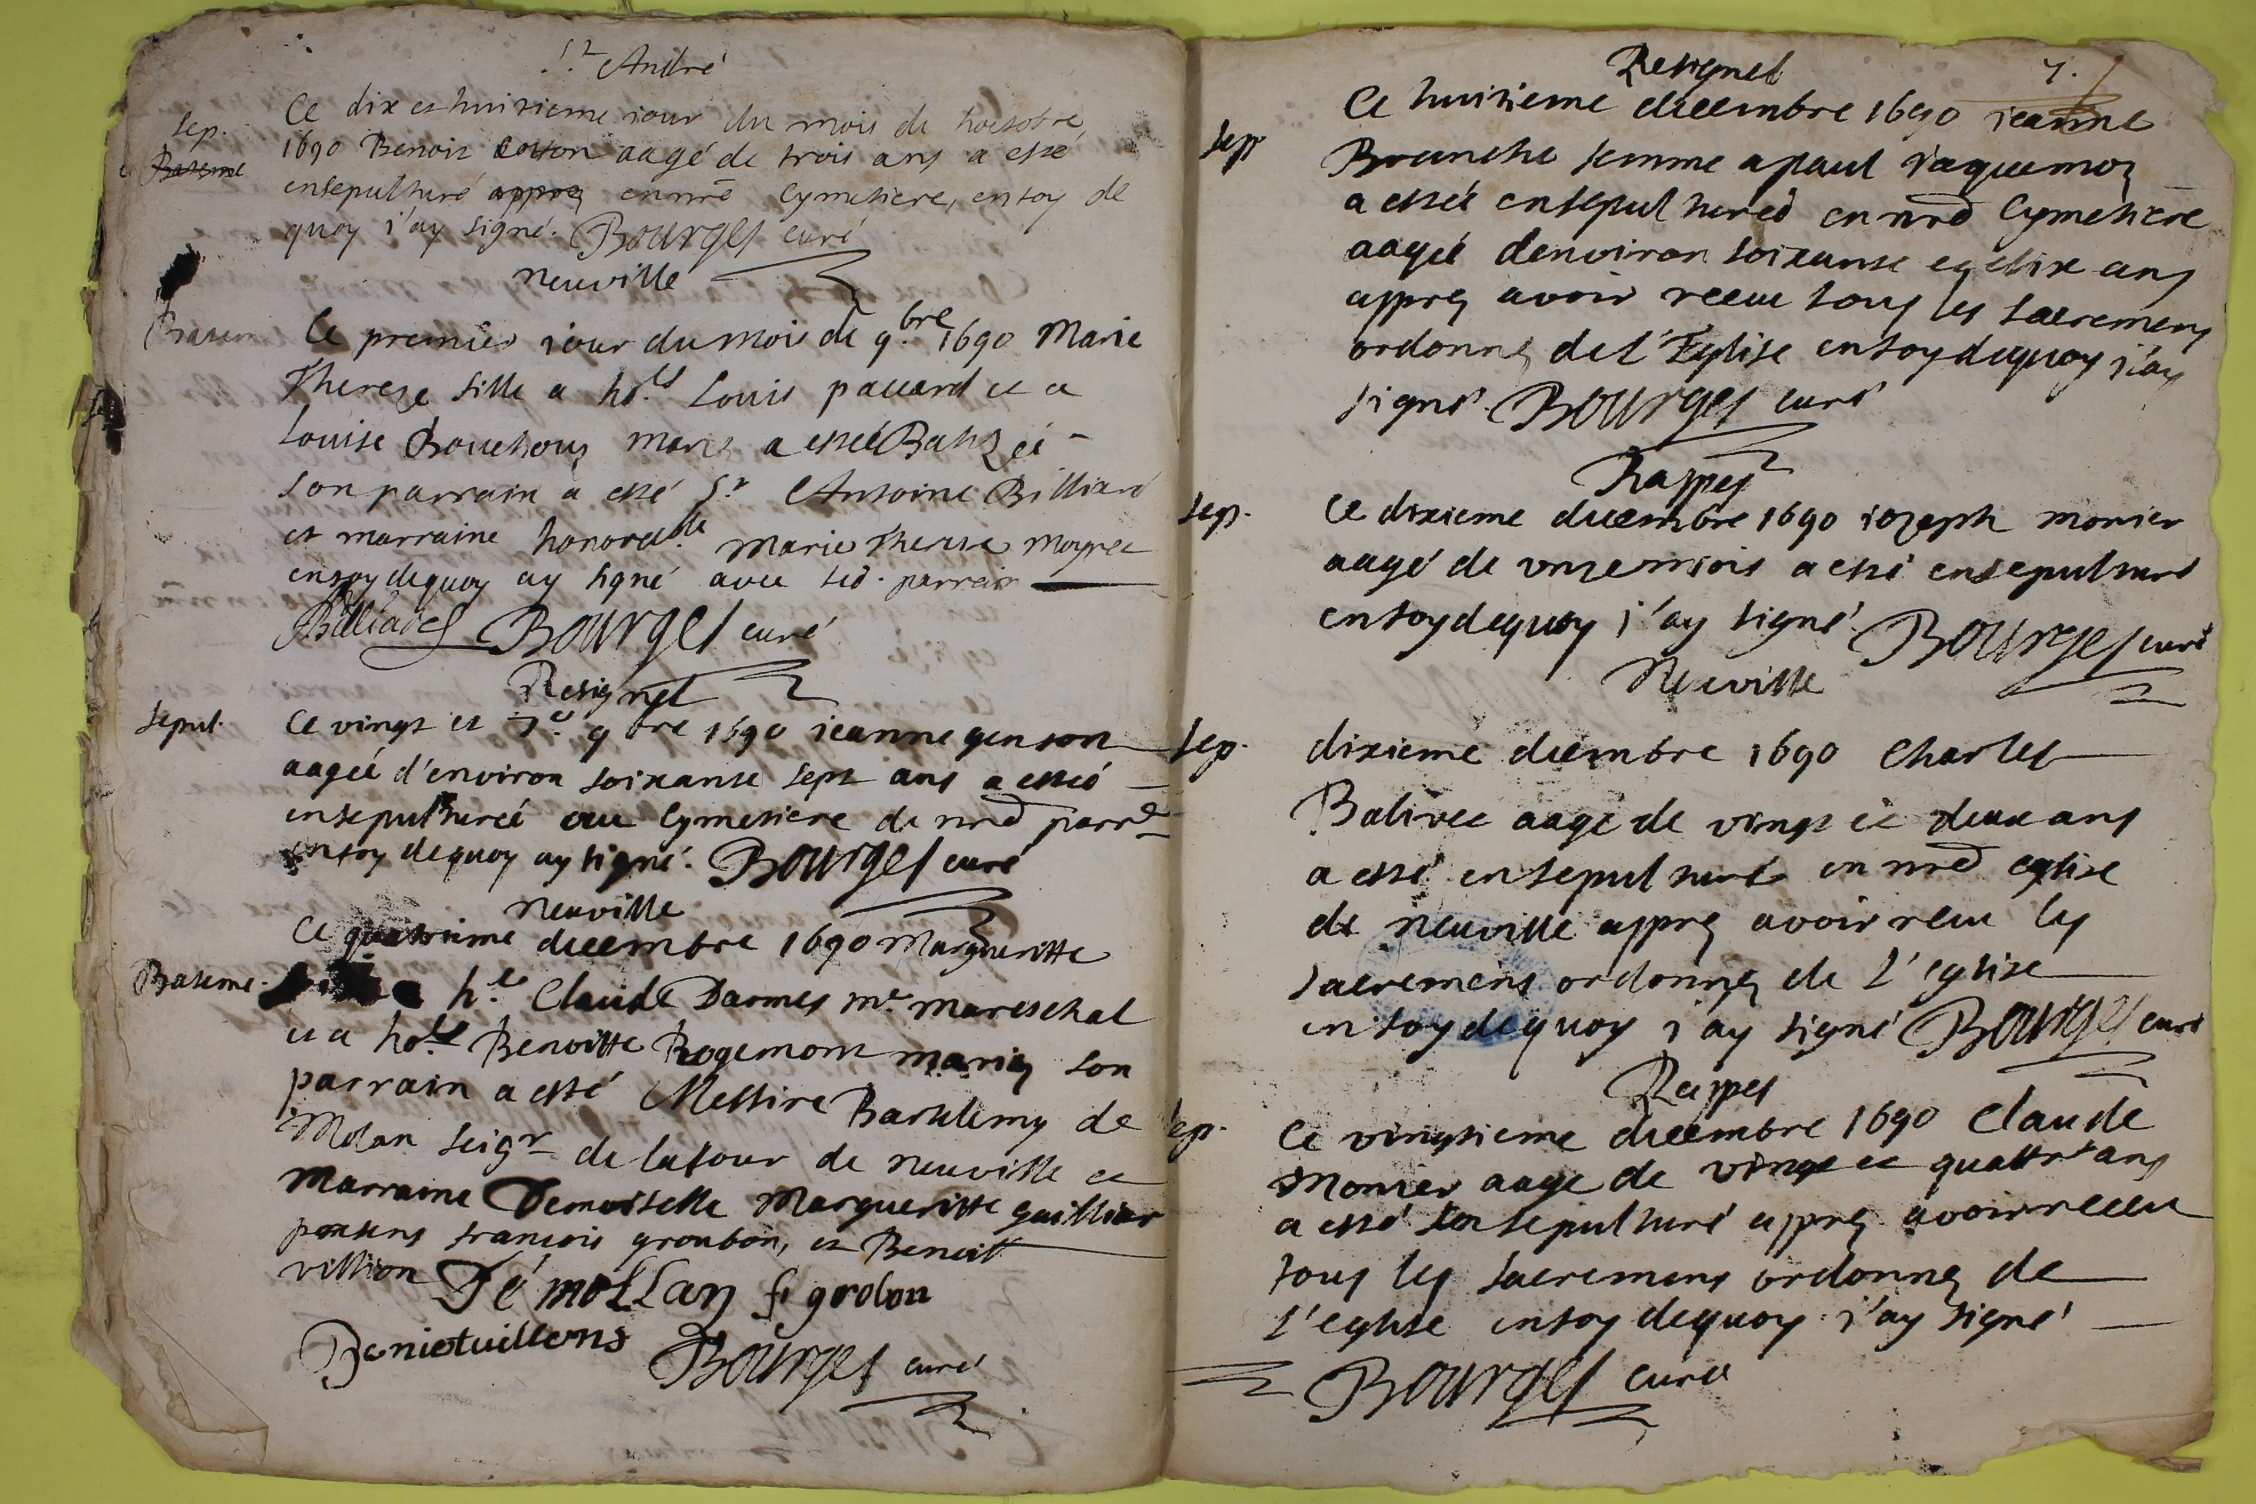 St André
Sep.
Bateme
Ce dix et huitieme iour du mois de hoctobre
1690 Benoit Cotton aagé de trois ans a esté
ensepulturé appres en nre Cymetiere, en foy de
quoy i'ay signé. Bourges curé
Neuville
Batem
Ce premier iour du mois de 9.bre 1690 Marie
Therese fille a ho.le Louis pauard et a
Louise Bouchoux mariez a estée Batizée
Son parrain a esté Sr Antoine Billiard
et marraine honorable Marie Therese Moyret
en foy de quoy ay signé avec led. parrain
Billiard Bourges curé
Resignel
Sepul.
Ce vingt et 7.e 9bre 1690 ieanne genson
aagée d'environ soixante sept ans a estée
ensepulturée au Cymetiere de nre parr.e
en foy de quoy ay signé. Bourges curé
Neuville
Bateme.
Ce quatrieme decembre 1690 Margueritte
h.le Claude Darmes m.e mareschal
et a ho.le Benoitte Rogemont mariez son
parrain a esté Messire Bartelemy de
Molan seigr de la tour de neuville et
marraine Demoiselle Margueritte Gaillior
presens francois groubon, et Benoit
villion Dé moLLan f grobon
Benietuillions Bourges curé
7.
Resignel
Sepp
Ce huitieme decembre 1690 ieanne
Branche femme a paul Jaquemoz
a estée ensepulturée en nre Cymetiere
aagée d'environ soixante et dix ans
appres avoir receu tous les sacremens
ordonnez de l'Eglise en foy de quoy i'ay
signé Bourges curé
Rappes
Sep.
Ce dixieme decembre 1690 iozeph monier
aagé de unze mois a esté ensepulturé
en foy de quoy i'ay signé Bourges curé
Neuville
Sep.
dixieme decembre 1690 Charles
Balivet aagé de vingt et deux ans
a esté ensepulturé en nre eglise
de neuville appres avoir receu les
sacremens ordonnez de l'eglise
en foy de quoy i'ay signé Bourges curé
Rappes
Sep.
Ce vingtieme decembre 1690 Claude
Monier aagé de vingt et quattre ans
a esté ensepulturé appres avoir receu
tous les sacremens ordonnez de
l'eglise en foy de quoy i'ay signé
Bourges curé